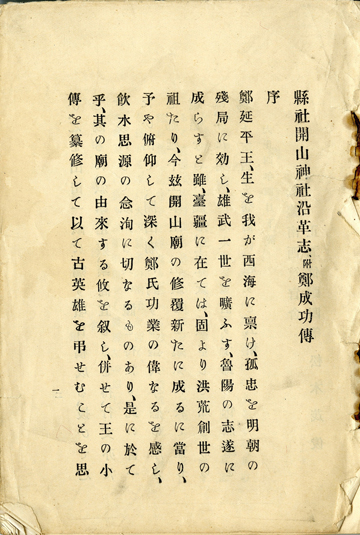 縣社開山神社沿革志、附鄭成功傳
序
鄭延平王、生を我が西海に稟け、孤忠を明朝の
殘局に効し、雄武一世を曠ふす、魯陽の志遂に
成らすと雖、臺疆に在ては、固より洪荒創世の
祖たり、今玆開山廟の修覆新たに成るに當り、
予や俯仰して深く鄭氏功業の偉なるを感し、
飲水思源の念洵に切なるものあり、是に於て
乎、其の廟の由來する攸を叙し、併せて王の小
傳を纂修して以て古英雄を弔せむことを思
一